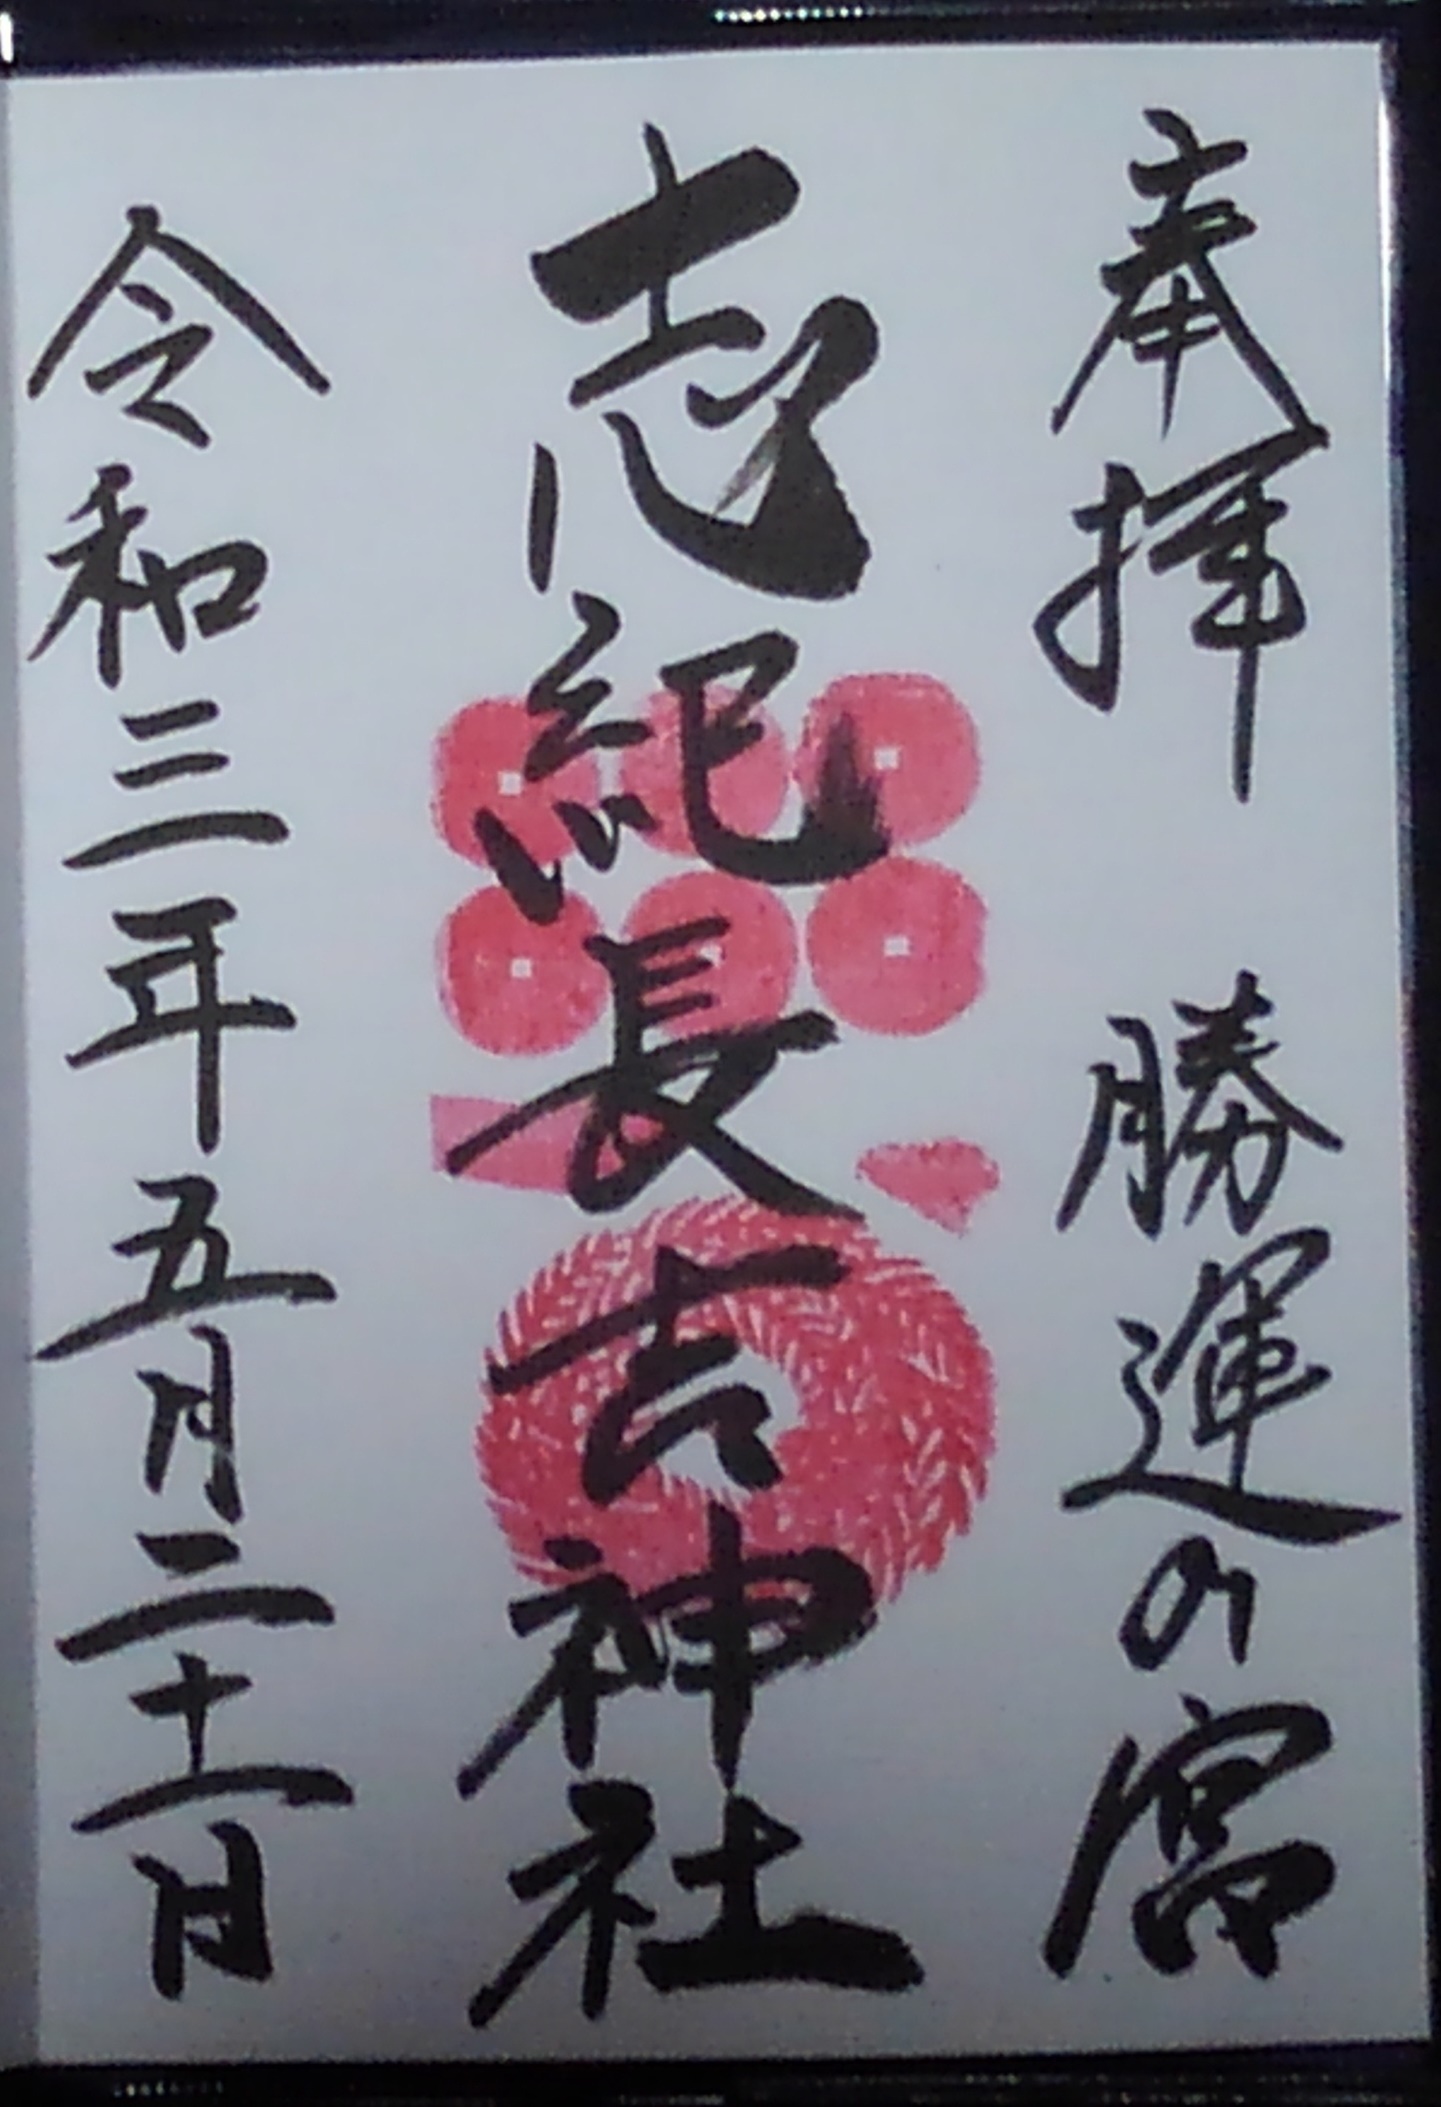 奉拝 勝運の宮
志紀長吉神社
令和三年五月二十一日